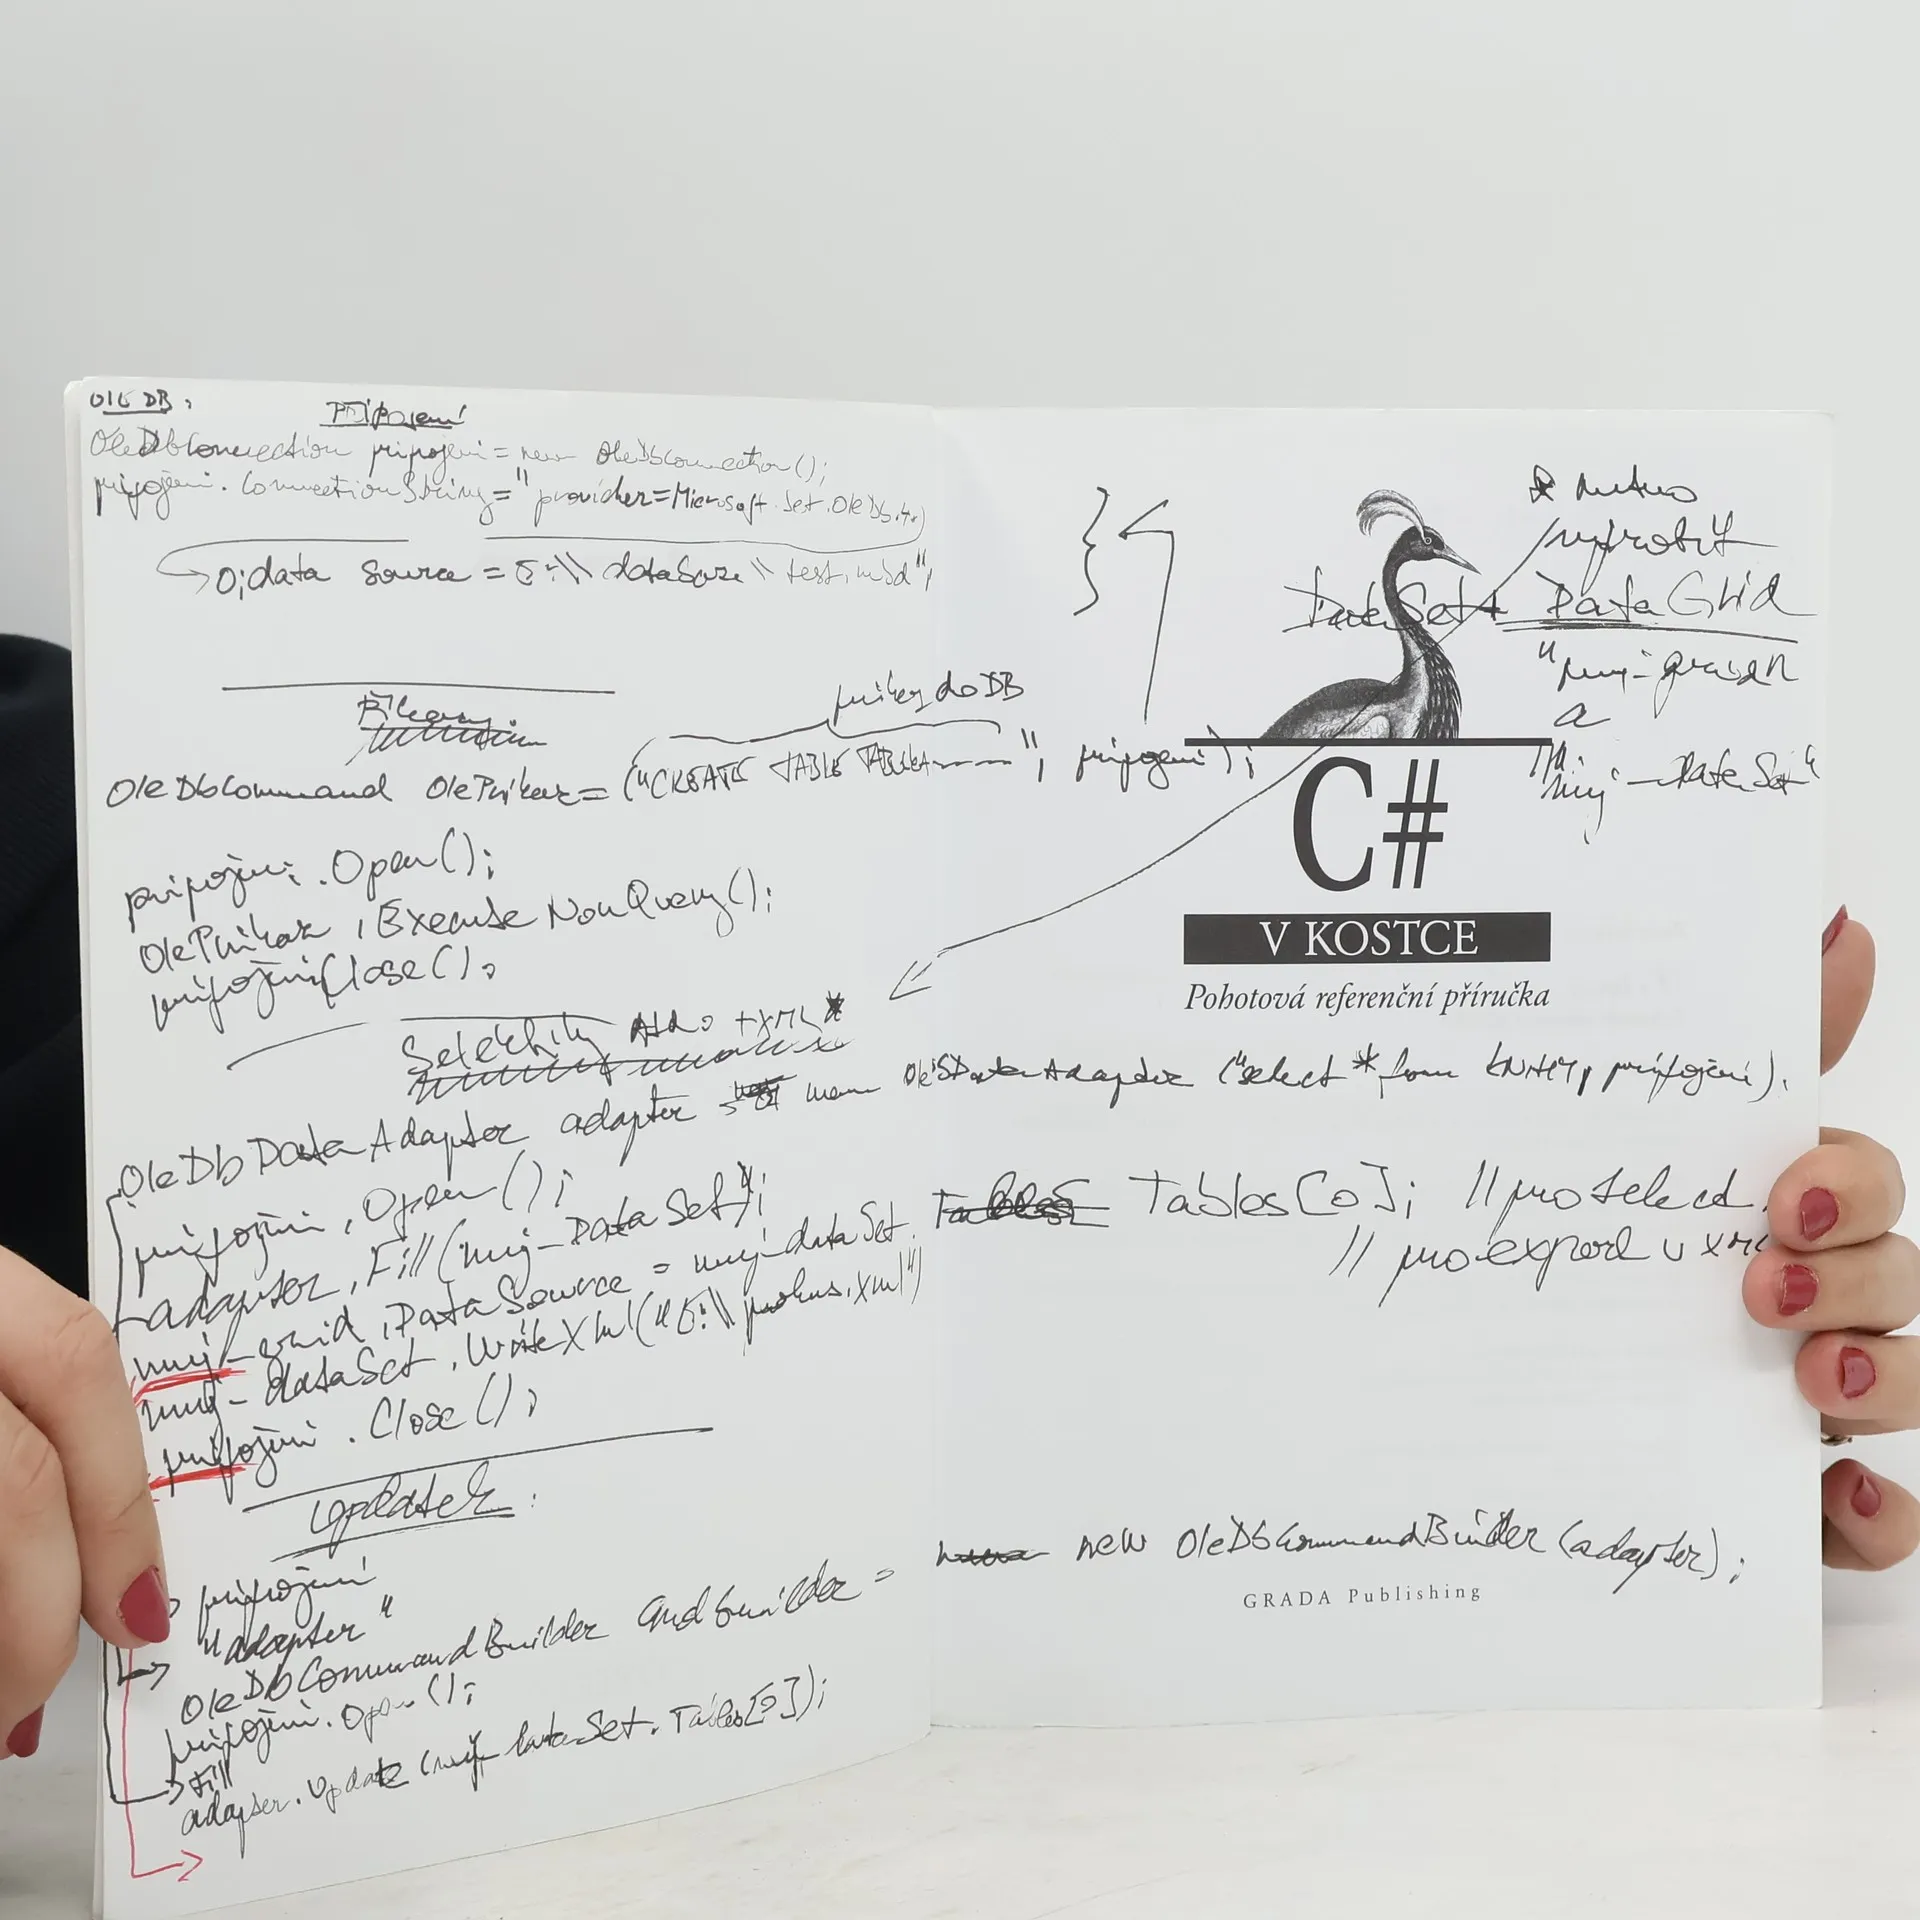 OLE DB:
Připojení
OleDbConnection připojeni = new OleDbConnection();
připojeni.ConnectionString = "provider=Microsoft.Jet.OleDb.4.
0;data source = E:\\ \\ test.mdb";
Příkazy:
příkazy do DB
OleDbCommand OlePrikaz = ("CREATE TABLE TABULKA-----", připojeni);
připojeni.Open();
OlePrikaz.ExecuteNonQuery();
připojeni.Close();
Selekty + XML *
OleDbDataAdapter adapter = new OleDbDataAdapter ("select * from KNIHY, připojeni).
připojeni.Open();
adapter.Fill(muj-DataSet");
muj-grid.DataSource = muj-dataSet. Tables[0]; // pro select
muj-dataSet.WriteXml("E:\\pokus.xml") // pro export v XML
připojeni.Close();
Updatek:
připojeni
"adapter"
OleDbCommandBuilder cmdbuilder = new OleDbCommandBuilder (adapter);
připojeni.Open();
Fill
adapter.Update (muj-dataSet.Tables[0]);
* nutno
vyrobit
DataSet + DataGrid
"muj-grid"
a
"muj-dataSet"
C#
V KOSTCE
Pohotová referenční příručka
GRADA Publishing